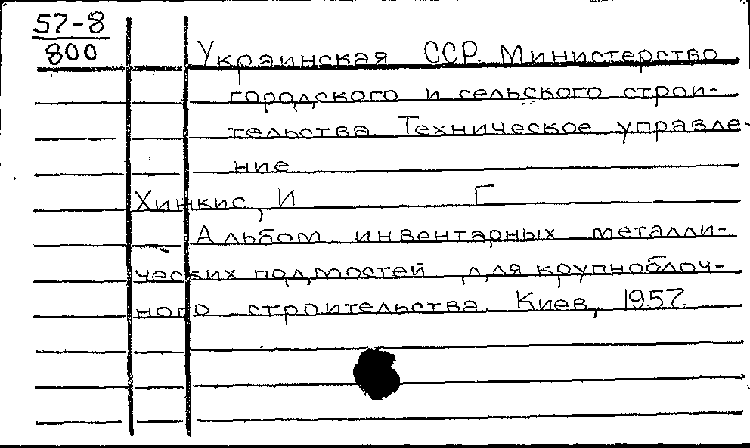 57-8
800
Украинская ССР. Министерство
городского и сельского строи-
тельства. Техническое управле-
ние
Хинкис, И Г
Альбом инвентарных металли-
ческих подмостей для крупноблоч-
ного строительства. Киев, 1957.